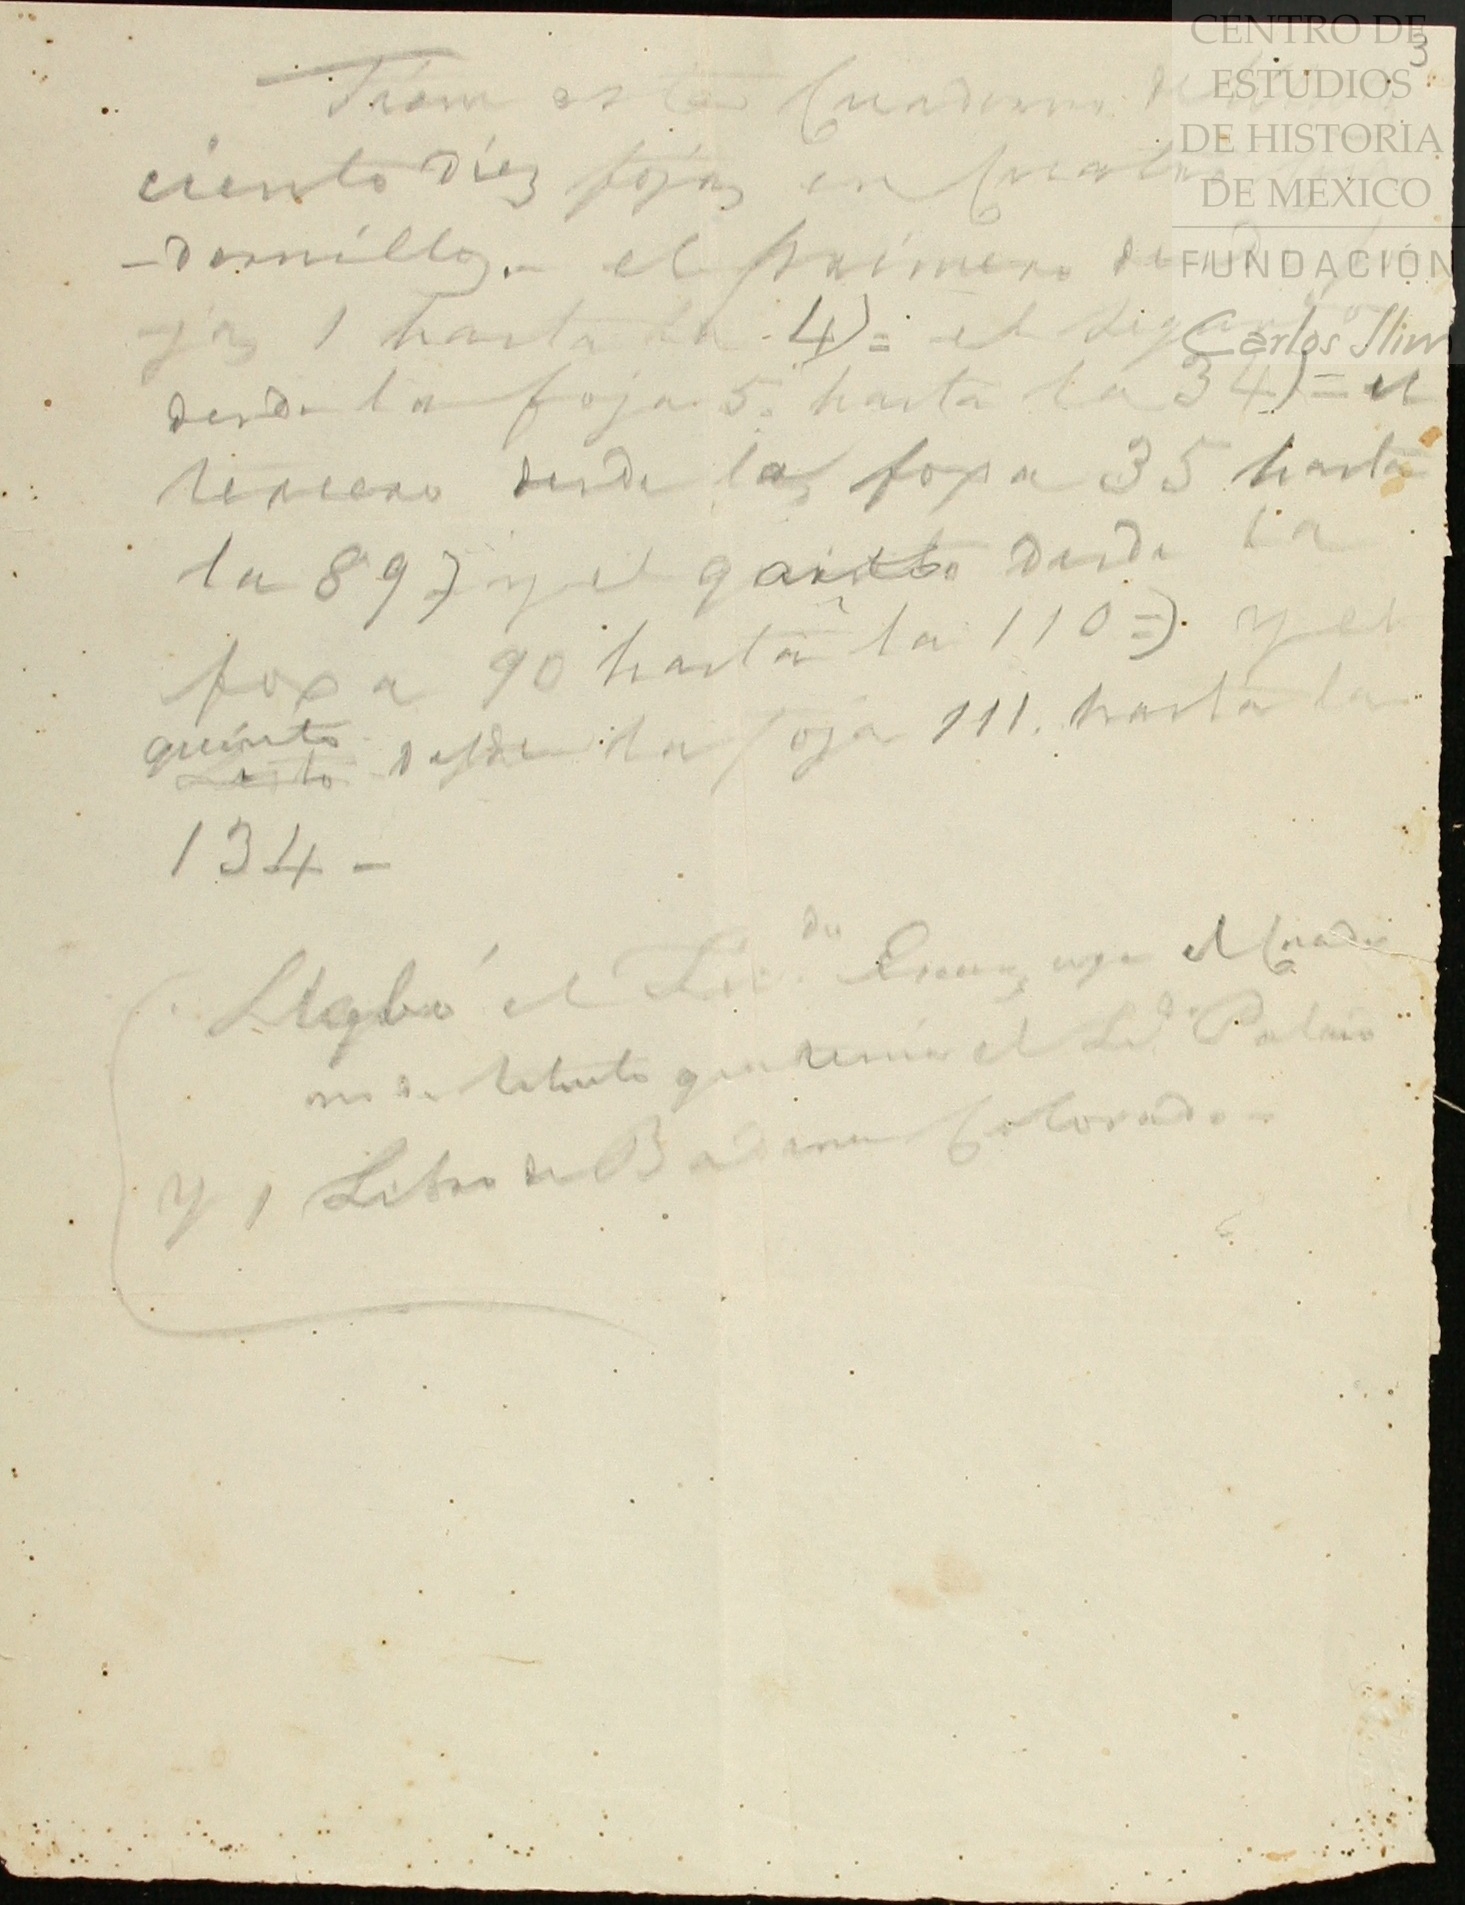 CENTRO DE
ESTUDIOS
DE HISTORIA
DE MEXICO
FUNDACIÓN
Carlos Slim
3
Tiene este Cuaderno de
ciento diez fojas en Cuatro
-dernillos.- el primero de
jas 1 hasta la 4)= el
desde la foja 5. hasta la 34)= el
tercero desde la foxa 35 hasta
la 89) y el desde la
foxa 90 hasta la 110=) y el
quinto desde la foja 111. hasta la
134-
Llebó el Licdo. el Cuader
no de que tenia el Ldo. Palacio
y 1 Libro de Badana Colorado-